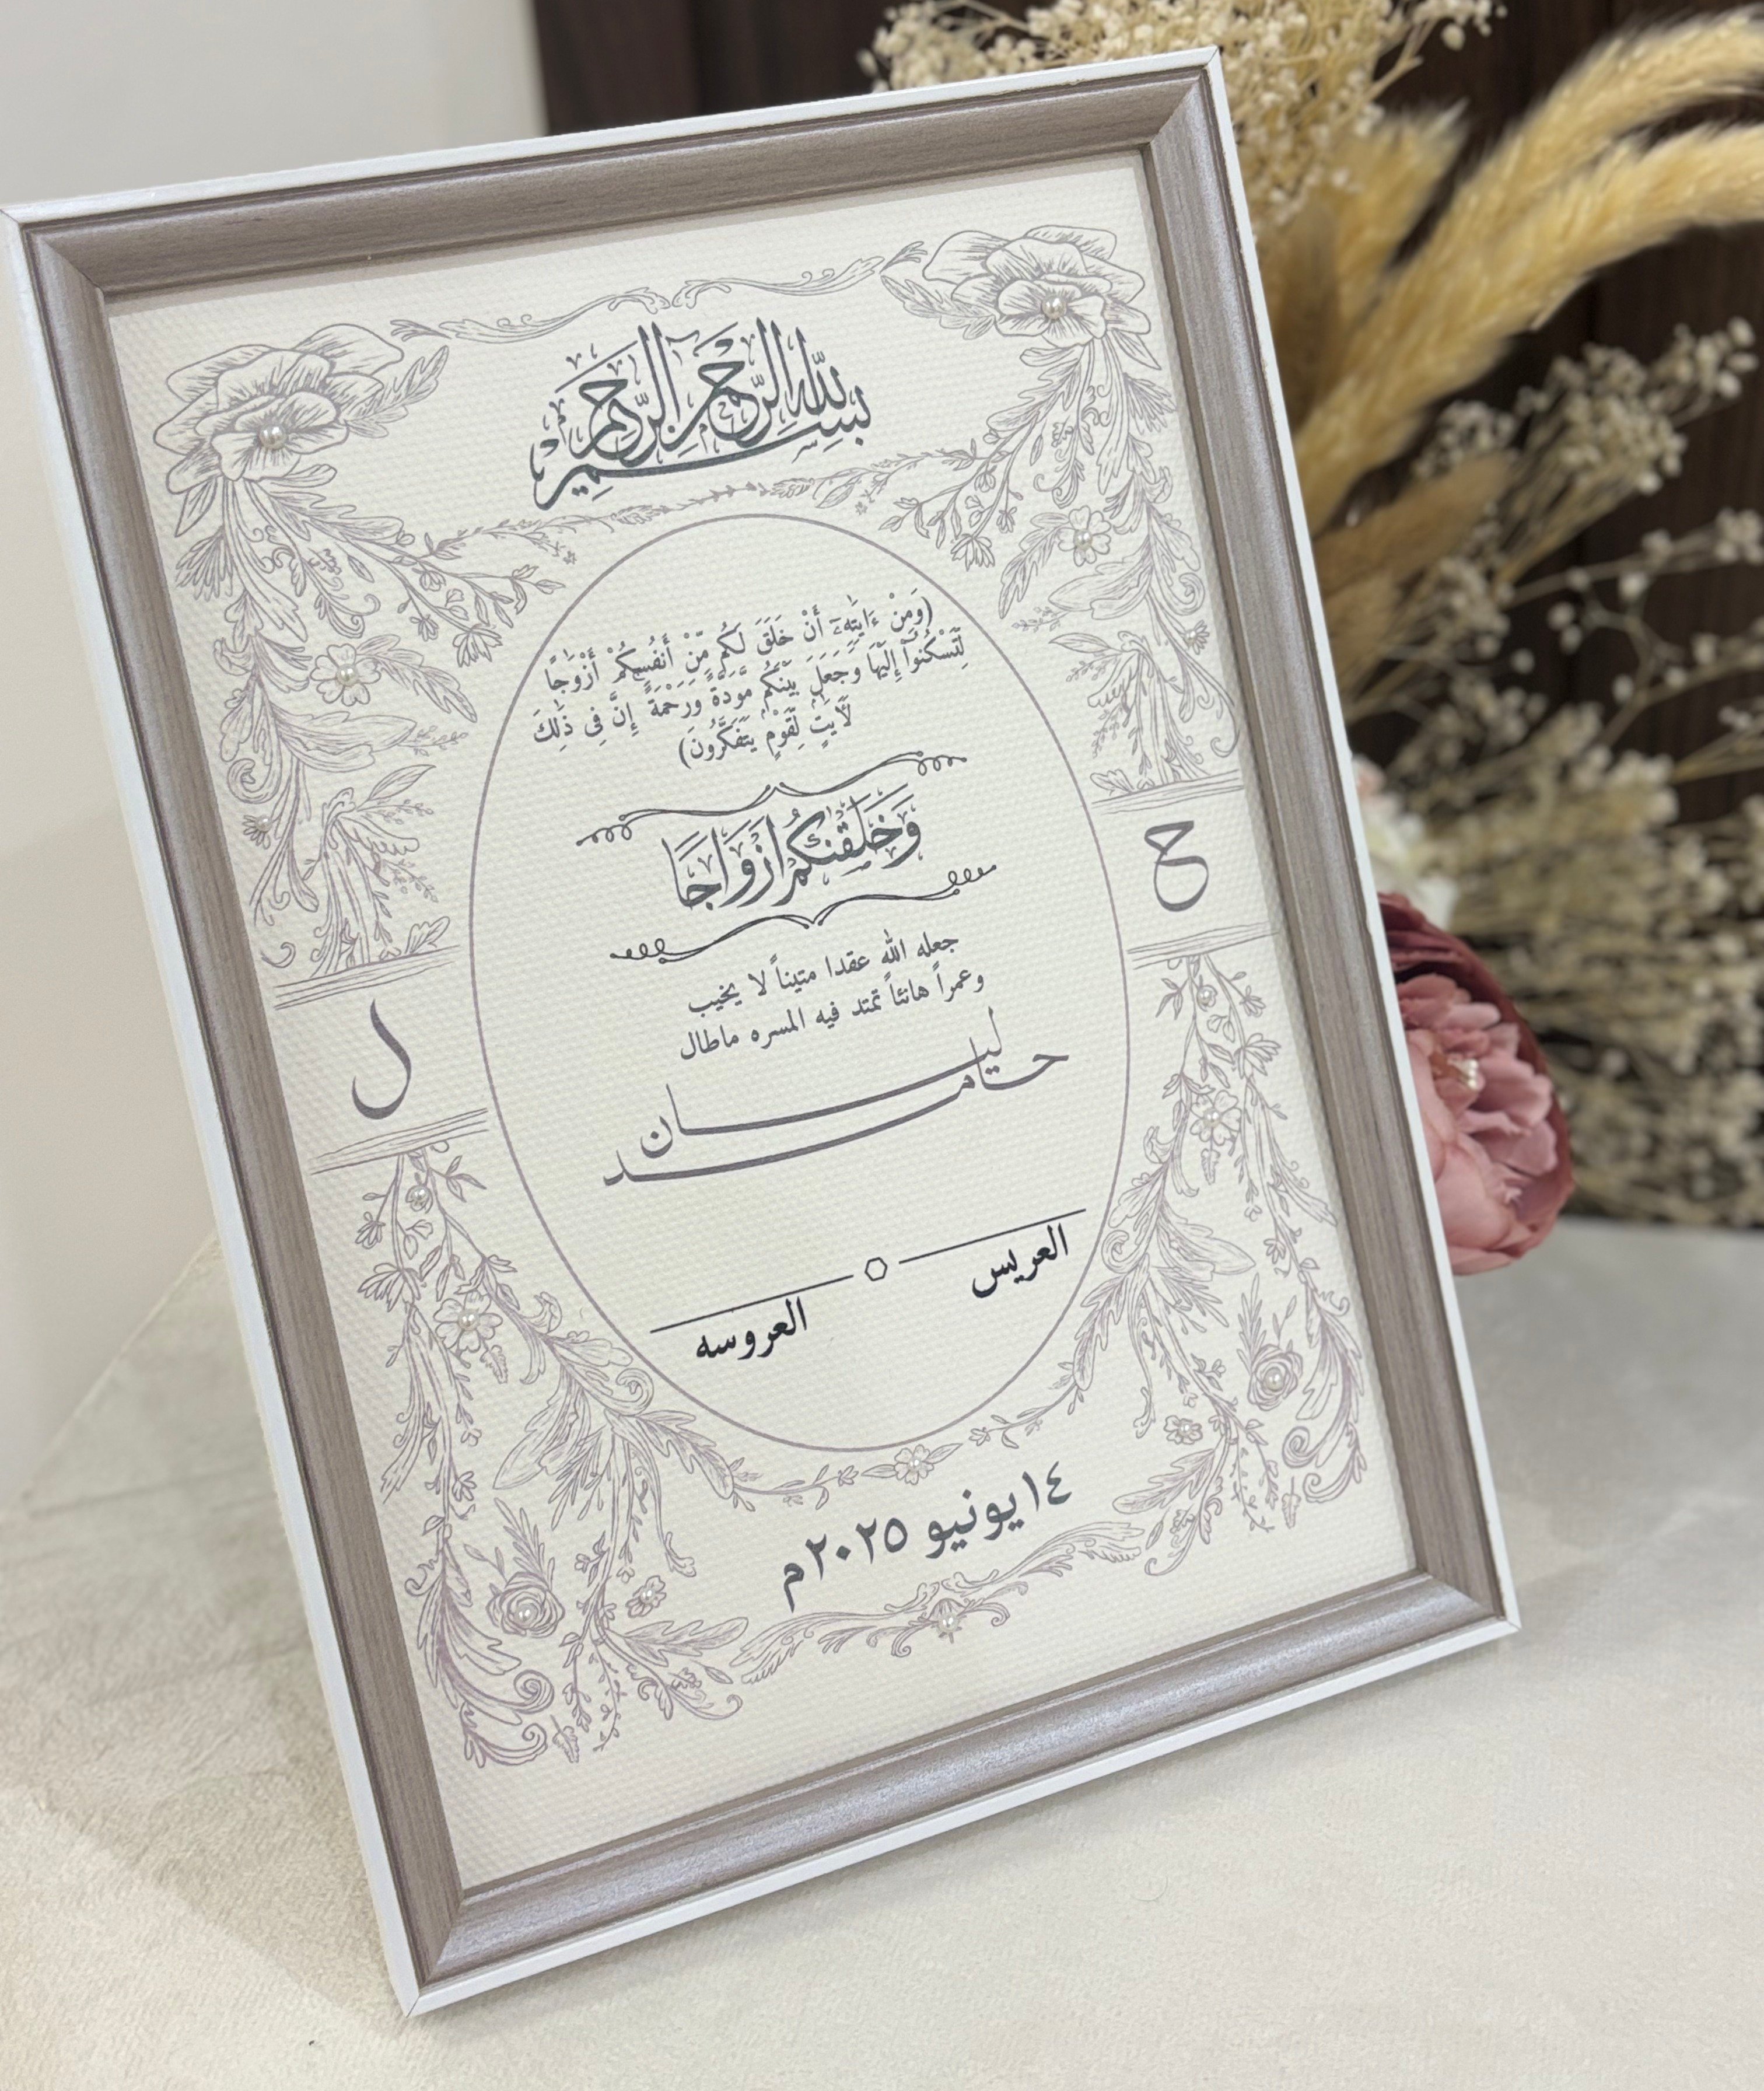 بسم الله الرحمن الرحيم
(وَمِنْ ءَايَٰتِهِۦٓ أَنْ خَلَقَ لَكُم مِّنْ أَنفُسِكُمْ أَزْوَٰجًا
لِّتَسْكُنُوٓا۟ إِلَيْهَا وَجَعَلَ بَيْنَكُم مَّوَدَّةً وَرَحْمَةً إِنَّ فِى ذَٰلِكَ
لَءَايَٰتٍ لِّقَوْمٍ يَتَفَكَّرُونَ)
وَخَلَقْنَٰكُمْ أَزْوَاجًا
ح
ل
جعله الله عقدا متيناً لا يخيب
وعمراً هانئاً تمتد فيه المسره ماطال
ليان
حامد
العريس
العروسه
١٤ يونيو ٢٠٢٥م